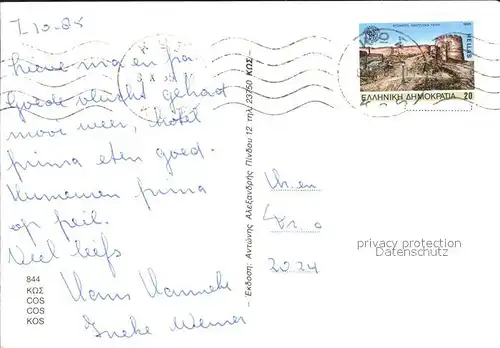 7.10.88
Lieve ma en pa
Goede vlucht gehad
mooi weer, hotel
prima eten goed.
Humeuren prima
op peil.
Veel liefs
Hans Hanneke
Ineke Werner
844
ΚΩΣ
COS
COS
KOS
– Έκδοση: Αντώνης Αλεξανδρής Πίνδου 12 τηλ 23750 ΚΩΣ –
HELLAS
ΕΛΛΗΝΙΚΗ ΔΗΜΟΚΡΑΤΙΑ 20
privacy protection
Datenschutz
2024